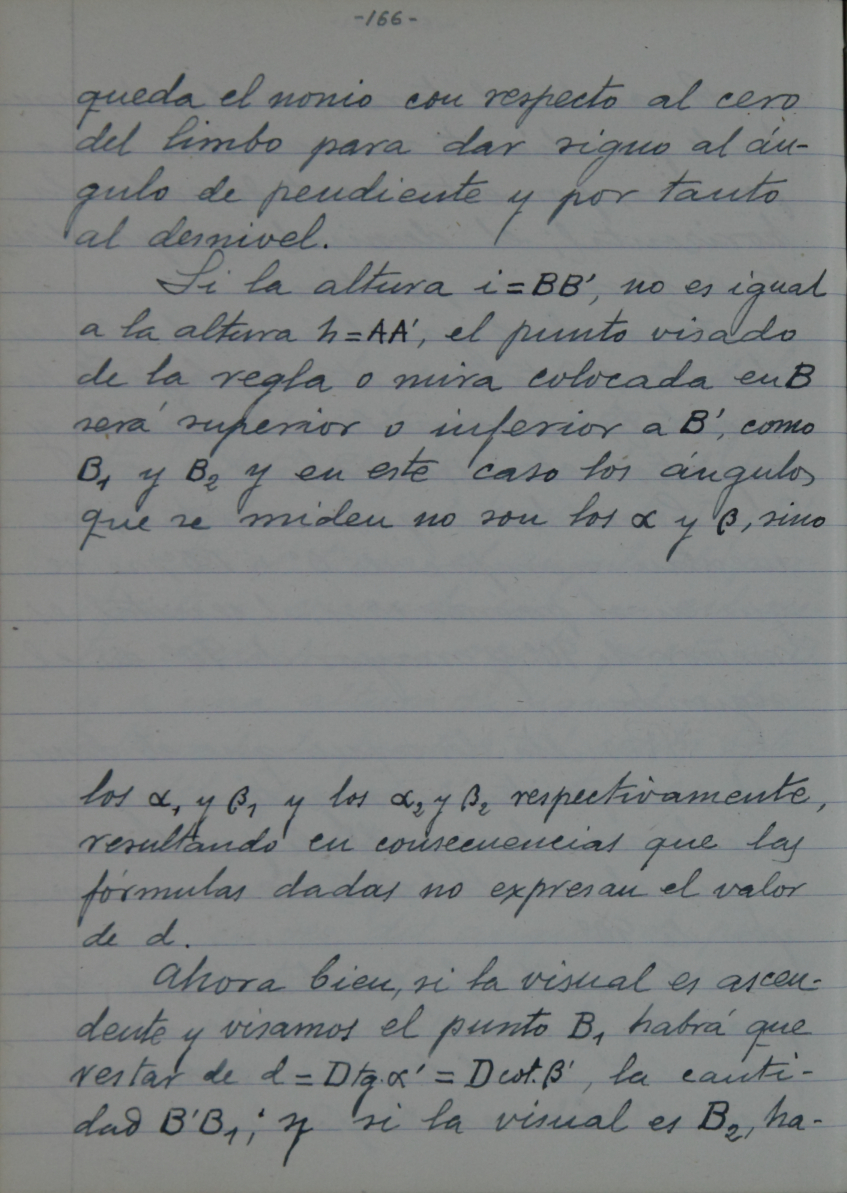 -166-
queda el nonio con respecto al cero
del limbo para dar signo al án-
gulo de pendiente y por tanto
al desnivel.
Si la altura i=BB', no es igual
a la altura h=AA', el punto visado
de la regla o mira colocada en B
será superior o inferior a B', como
B₁ y B₂ y en este caso los ángulos
que se miden no son los α y β, sino
los α₁ y β₁ y los α₂ y β₂ respectivamente,
resultando en consecuencias que las
fórmulas dadas no expresan el valor
de d.
Ahora bien, si la visual es ascen-
dente y visamos el punto B₁ habrá que
restar de d = D tg. α' = D cot. β', la canti-
dad B'B₁; y si la visual es B₂, ha-